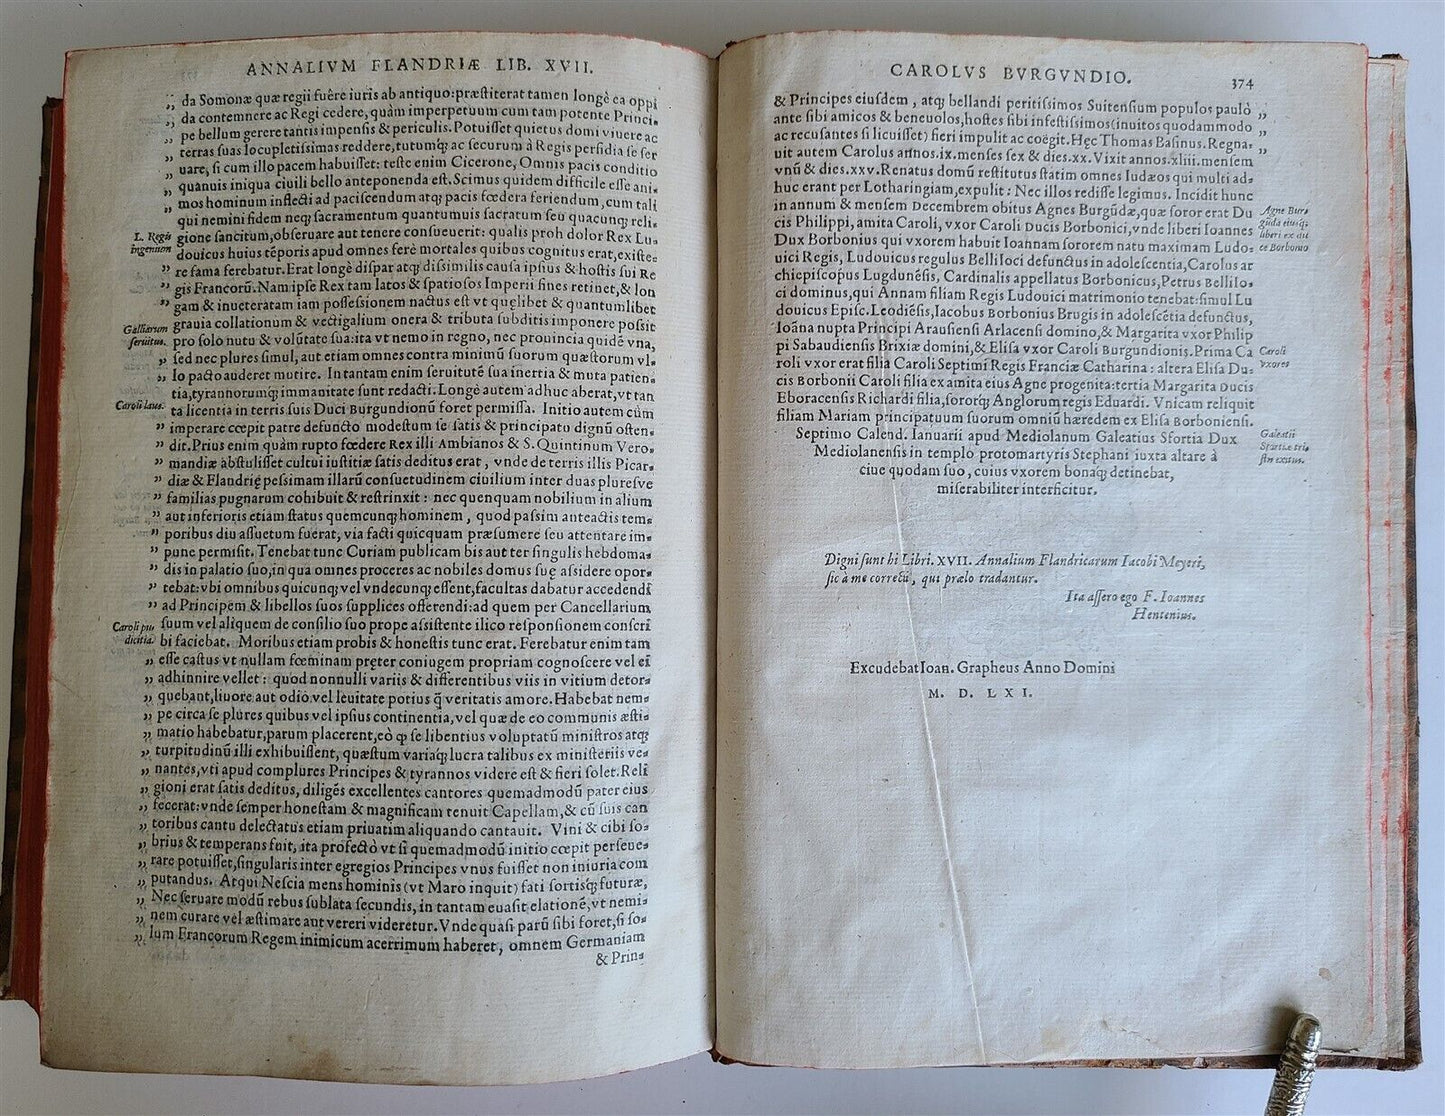 ANNALIVM FLANDRIÆ LIB. XVII.
da Somonæ quæ regii fuêre iuris ab antiquo: præſtiterat tamen longè ea oppi
da contemnere ac Regi cedere, quàm imperpetuum cum tam potente Princi-
pe bellum gerere tantis impenſis & periculis. Potuiſſet quietus domi viuere ac
terras ſuas locupletiſſimas reddere, tutumq; ac ſecurum à Regis perfidia ſe ſer
uare, ſi cum illo pacem habuiſſet: teſte enim Cicerone, Omnis pacis conditio
quanuis iniqua ciuili bello anteponenda eſt. Scimus quidem difficile eſſe ani-
mos hominum inflecti ad paciſcendum atq; pacis fœdera feriendum, cum tali
qui nemini fidem neq; ſacramentum quantumuis ſacratum ſeu quacunq; reli-
L. Regis
ingenium
gione ſancitum, obſeruare aut tenere conſueuerit: qualis proh dolor Rex Lu-
douicus huius tēporis apud omnes ferè mortales quibus cognitus erat, exiſte-
re fama ferebatur. Erat longè diſpar atq; diſsimilis cauſa ipſius & hoſtis ſui Re
gis Francorū. Nam ipſe Rex tam latos & ſpatioſos Imperii fines retinet, & lon
gam & inueteratam iam poſſeſsionem nactus eſt vt quęlibet & quantumlibet
Galliarum
ſeruitus.
grauia collationum & vectigalium onera & tributa ſubditis imponere poſsit
pro ſolo nutu & volūtate ſua: ita vt nemo in regno, nec prouincia quidē vna,
ſed nec plures ſimul, aut etiam omnes contra minimū ſuorum quæſtorum vl-
lo pacto auderet mutire. In tantam enim ſeruitutē ſua inertia & muta patien-
tia, tyrannorumq; immanitate ſunt redacti. Longè autem adhuc aberat, vt tan
Caroli laus.
ta licentia in terris ſuis Duci Burgundionū foret permiſſa. Initio autem cùm
imperare cœpit patre defuncto modeſtum ſe ſatis & principatu dignū oſten-
dit. Prius enim quàm rupto fœdere Rex illi Ambianos & S. Quintinum Vero-
mandiæ abſtuliſſet cultui iuſtitiæ ſatis deditus erat, vnde de terris illis Picar-
diæ & Flandrię peſsimam illarū conſuetudinem ciuilium inter duas plureſve
familias pugnarum cohibuit & reſtrinxit: nec quenquam nobilium in alium
aut inferioris etiam ſtatus quemcunq; hominem, quod paſsim anteactis tem-
poribus diu aſſuetum fuerat, via facti quicquam præſumere ſeu attentare im-
pune permiſit. Tenebat tunc Curiam publicam bis aut ter ſingulis hebdoma-
dis in palatio ſuo, in qua omnes proceres ac nobiles domus ſuę aſsidere opor-
tebat: vbi omnibus quicunq; vel vndecunq; eſſent, facultas dabatur accedendi
ad Principem & libellos ſuos ſupplices offerendi: ad quem per Cancellarium
Caroli pu
dicitia.
ſuum vel aliquem de conſilio ſuo prope aſsiſtente ilico reſponſionem conſcri
bi faciebat. Moribus etiam probis & honeſtis tunc erat. Ferebatur enim tam
eſſe caſtus vt nullam fœminam pręter coniugem propriam cognoſcere vel ei
adhinnire vellet: quod nonnulli variis & differentibus viis in vitium detor-
quebant, liuore aut odio vel leuitate potius q̃ veritatis amore. Habebat nem-
pe circa ſe plures quibus vel ipſius continentia, vel quæ de eo communis æſti-
matio habebatur, parum placerent, eò q; ſe libentius voluptatū miniſtros atq;
turpitudinū illi exhibuiſſent, quæſtum variaq; lucra talibus ex miniſteriis ve-
nantes, vti apud complures Principes & tyrannos videre eſt & fieri ſolet. Reli
gioni erat ſatis deditus, diligēs excellentes cantores quemadmodū pater eius
fecerat: vnde ſemper honeſtam & magnificam tenuit Capellam, & cū ſuis can
toribus cantu delectatus etiam priuatim aliquando cantauit. Vini & cibi ſo-
brius & temperans fuit, ita profectò vt ſi quemadmodū initio cœpit perſeue-
rare potuiſſet, ſingularis inter egregios Principes vnus fuiſſet non iniuria com
putandus. Atqui Neſcia mens hominis (vt Maro inquit) fati ſortisq; futuræ,
Nec ſeruare modū rebus ſublata ſecundis, in tantam euaſit elationē, vt nemi-
nem curare vel æſtimare aut vereri videretur. Vnde quaſi parū ſibi foret, ſi ſo-
lum Francorum Regem inimicum acerrimum haberet, omnem Germaniam
& Prin-
CAROLVS BVRGVNDIO. 374
& Principes eiuſdem, atq; bellandi peritiſsimos Suitenſium populos paulò
ante ſibi amicos & beneuolos, hoſtes ſibi infeſtiſsimos (inuitos quodammodo
ac recuſantes ſi licuiſſet) fieri impulit ac coëgit. Hęc Thomas Baſinus. Regna-
uit autem Carolus annos. ix. menſes ſex & dies. xx. Vixit annos. xliii. menſem
vnū & dies. xxv. Renatus domū reſtitutus ſtatim omnes Iudæos qui multi ad-
huc erant per Lotharingiam, expulit: Nec illos rediſſe legimus. Incidit hunc
in annum & menſem Decembrem obitus Agnes Burgūdæ, quæ ſoror erat Du
cis Philippi, amita Caroli, vxor Caroli Ducis Borbonici, vnde liberi Ioannes
Agne Bur-
gūda eiusq;
liberi ex du
ce Borbonio
Dux Borbonius qui vxorem habuit Ioannam ſororem natu maximam Ludo-
uici Regis, Ludouicus regulus Belliloci defunctus in adoleſcentia, Carolus ar
chiepiſcopus Lugdunēſis, Cardinalis appellatus Borbonicus, Petrus Bellilo-
ci dominus, qui Annam filiam Regis Ludouici matrimonio tenebat: ſimul Lu
douicus Epiſc. Leodiēſis, Iacobus Borbonius Brugis in adoleſcētia defunctus,
Ioāna nupta Principi Arauſienſi Arlacenſi domino, & Margarita vxor Philip
pi Sabaudienſis Brixiæ domini, & Eliſa vxor Caroli Burgundionis. Prima Ca
Caroli
vxores
roli vxor erat filia Caroli Septimi Regis Franciæ Catharina: altera Eliſa Du-
cis Borbonii Caroli filia ex amita eius Agne progenita: tertia Margarita Ducis
Eboracenſis Richardi filia, ſororq; Anglorum regis Eduardi. Vnicam reliquit
filiam Mariam principatuum ſuorum omniū hæredem ex Eliſa Borbonienſi.
Septimo Calend. Ianuarii apud Mediolanum Galeatius Sfortia Dux
Galeatii
Sfortiæ tri-
ſtis exitus.
Mediolanenſis in templo protomartyris Stephani iuxta altare à
ciue quodam ſuo, cuius vxorem bonaq; detinebat,
miſerabiliter interficitur.
Digni ſunt hi Libri. XVII. Annalium Flandricarum Iacobi Meyeri,
ſic à me correcti, qui prælo tradantur.
Ita aſſero ego F. Ioannes
Hentenius.
Excudebat Ioan. Grapheus Anno Domini
M. D. LXI.